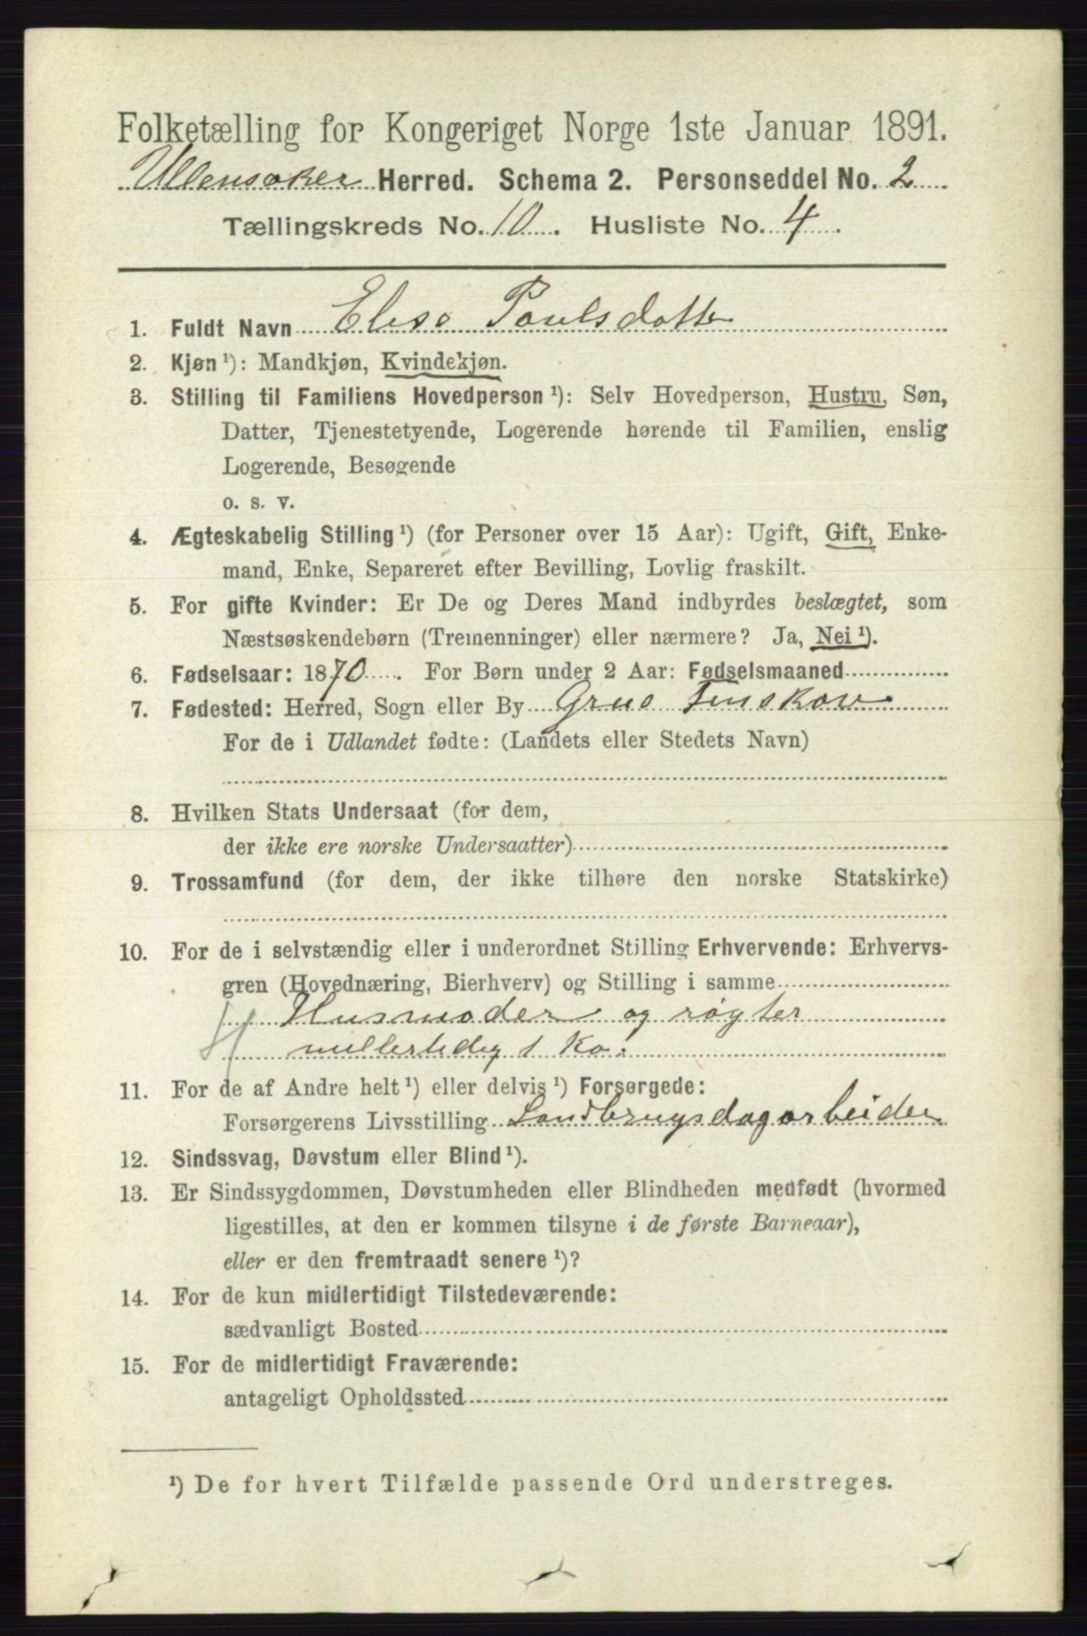 Folketælling for Kongeriget Norge 1ste Januar 1891.
Ullensaker Herred. Schema 2. Personseddel No. 2
Tællingskreds No. 10. Husliste No. 4.
1. Fuldt Navn Elise Paulsdatter
2. Kjøn ¹): Mandkjøn, Kvindekjøn.
3. Stilling til Familiens Hovedperson ¹): Selv Hovedperson, Hustru, Søn,
Datter, Tjenestetyende, Logerende hørende til Familien, enslig
Logerende, Besøgende
o. s. v.
4. Ægteskabelig Stilling ¹) (for Personer over 15 Aar): Ugift, Gift, Enke-
mand, Enke, Separeret efter Bevilling, Lovlig fraskilt.
5. For gifte Kvinder: Er De og Deres Mand indbyrdes beslægtet, som
Næstsøskendebørn (Tremenninger) eller nærmere? Ja, Nei ¹).
6. Fødselsaar: 1870. For Børn under 2 Aar: Fødselsmaaned
7. Fødested: Herred, Sogn eller By Grue Finskov
For de i Udlandet fødte: (Landets eller Stedets Navn)
8. Hvilken Stats Undersaat (for dem,
der ikke ere norske Undersaatter)
9. Trossamfund (for dem, der ikke tilhøre den norske Statskirke)
10. For de i selvstændig eller i underordnet Stilling Erhvervende: Erhvervs-
gren (Hovednæring, Bierhverv) og Stilling i samme
Husmoder og røgter
midlertidig 1 Ko.
11. For de af Andre helt ¹) eller delvis ¹) Forsørgede:
Forsørgerens Livsstilling Landbrugsdagarbeider
12. Sindssvag, Døvstum eller Blind ¹).
13. Er Sindssygdommen, Døvstumheden eller Blindheden medfødt (hvormed
ligestilles, at den er kommen tilsyne i de første Barneaar),
eller er den fremtraadt senere ¹)?
14. For de kun midlertidigt Tilstedeværende:
sædvanligt Bosted
15. For de midlertidigt Fraværende:
antageligt Opholdssted
¹) De for hvert Tilfælde passende Ord understreges.